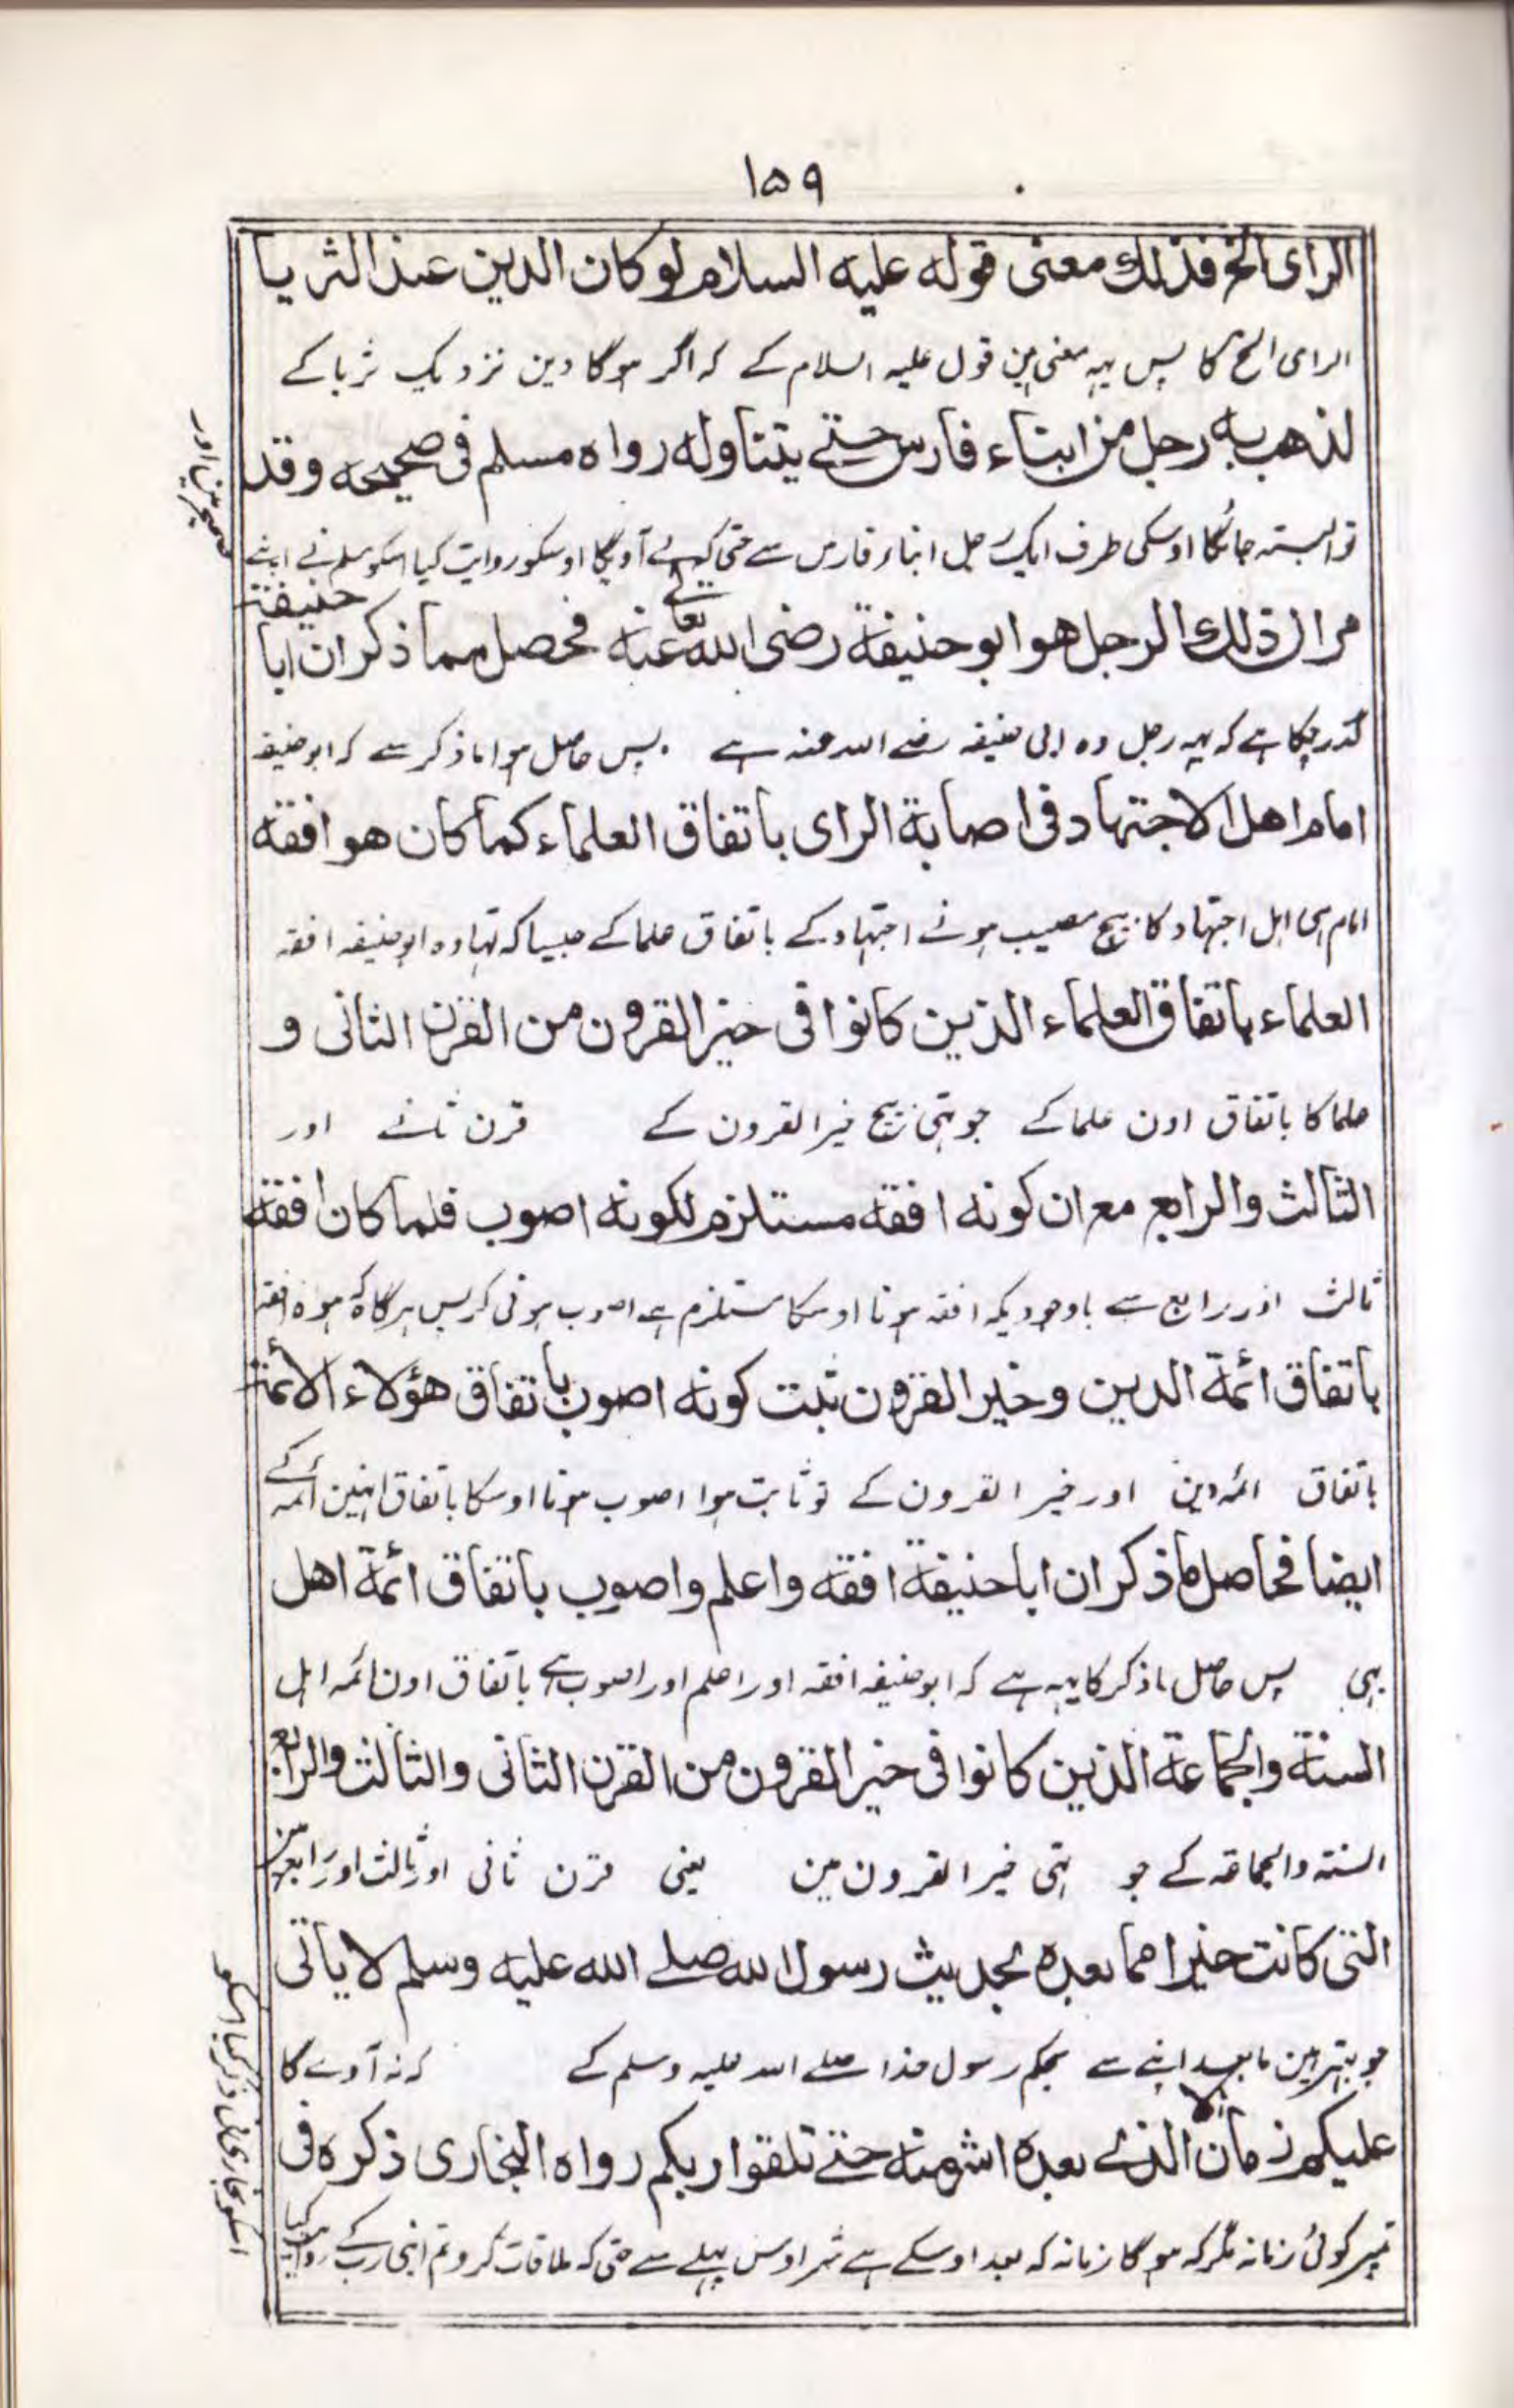 ۱۵۹
الرای الخ فذلك معنی قوله علیه السلام لو کان الدین عند الثریا
الرای الخ کا پس یہہ معنی ہین قول علیہ السلام کے کہ اگر ہوگا دین نزدیک ثریا کے
لذهب به رجل من ابناء فارس حتے یتناوله رواه مسلم فی صحیحه وقد
تو البتہ جائگا اوسکی طرف ایک رجل ابناء فارس سے حتی کہ لے آویگا اوسکو روایت کیا اسکو مسلم نے اپنے
صحیح مین اور
مر ان ذلك الرجل هو ابو حنیفة رضی الله تعالے عنه فحصل مما ذکر ان ابا حنیفة
گذر چکا ہے کہ یہہ رجل وہ ابی حنیفہ رضے اللہ عنہ ہے . پس حاصل ہوا ماذکر سے کہ ابو حنیفہ
امام اهل الاجتهاد فی اصابة الرای باتفاق العلماء کما کان هو افقه
امام ہی اہل اجتہاد کا بیچ مصیب ہونے اجتہاد کے باتفاق علما کے جیسا کہ تہا وہ ابو حنیفہ افقہ
العلماء باتفاق العلماء الذین کانوا فی خیر القرون من القرن الثانی و
علما کا باتفاق اون علما کے جو تہی بیچ خیر القرون کے قرن ثانے اور
الثالث والرابع مع ان کونه افقه مستلزم لکونه اصوب فلما کان افقه
ثالث اور رابع سے باوجودیکہ افقہ ہونا اوسکا مستلزم ہے اصوب ہونی کو پس ہرگاہ کہ ہوہ افقہ
باتفاق ائمة الدین وخیر القرون ثبت کونه اصوب باتفاق هؤلاء الائمة
باتفاق ائمہ دین اور خیر القرون کے تو ثابت ہوا اصوب ہونا اوسکا باتفاق انہین ائمہ کے
ایضا فحاصل ما ذکر ان ابا حنیفة افقه واعلم واصوب باتفاق ائمة اهل
بہی پس حاصل ماذکر کا یہہ ہے کہ ابو حنیفہ افقہ اور اعلم اور اصوب ہے باتفاق اون ائمہ اہل
السنة والجماعة الذین کانوا فی خیر القرون من القرن الثانی والثالث والرابع
السنتہ والجماعتہ کے جو تہی خیر القرون مین یعنی قرن ثانی اور ثالث اور رابع مین
التی کانت خیرا مما بعده بحدیث رسول الله صلے الله علیه وسلم لا یاتی
جو بہتر ہین مابعد اپنے سے بحکم رسول خدا صلے اللہ علیہ وسلم کے کہ نہ آوے گا
علیکم زمان الا الذے بعده اشر منه حتے تلقوا ربکم رواه البخاری ذکره فی
تمپر کوئی زمانہ مگر کہ ہوگا زمانہ کہ بعد اوسکے ہے شر اوس پہلے سے حتی کہ ملاقات کرو تم اپنی رب کے روایت کیا
اسکو بخاری نی ذکر کیا اسکو